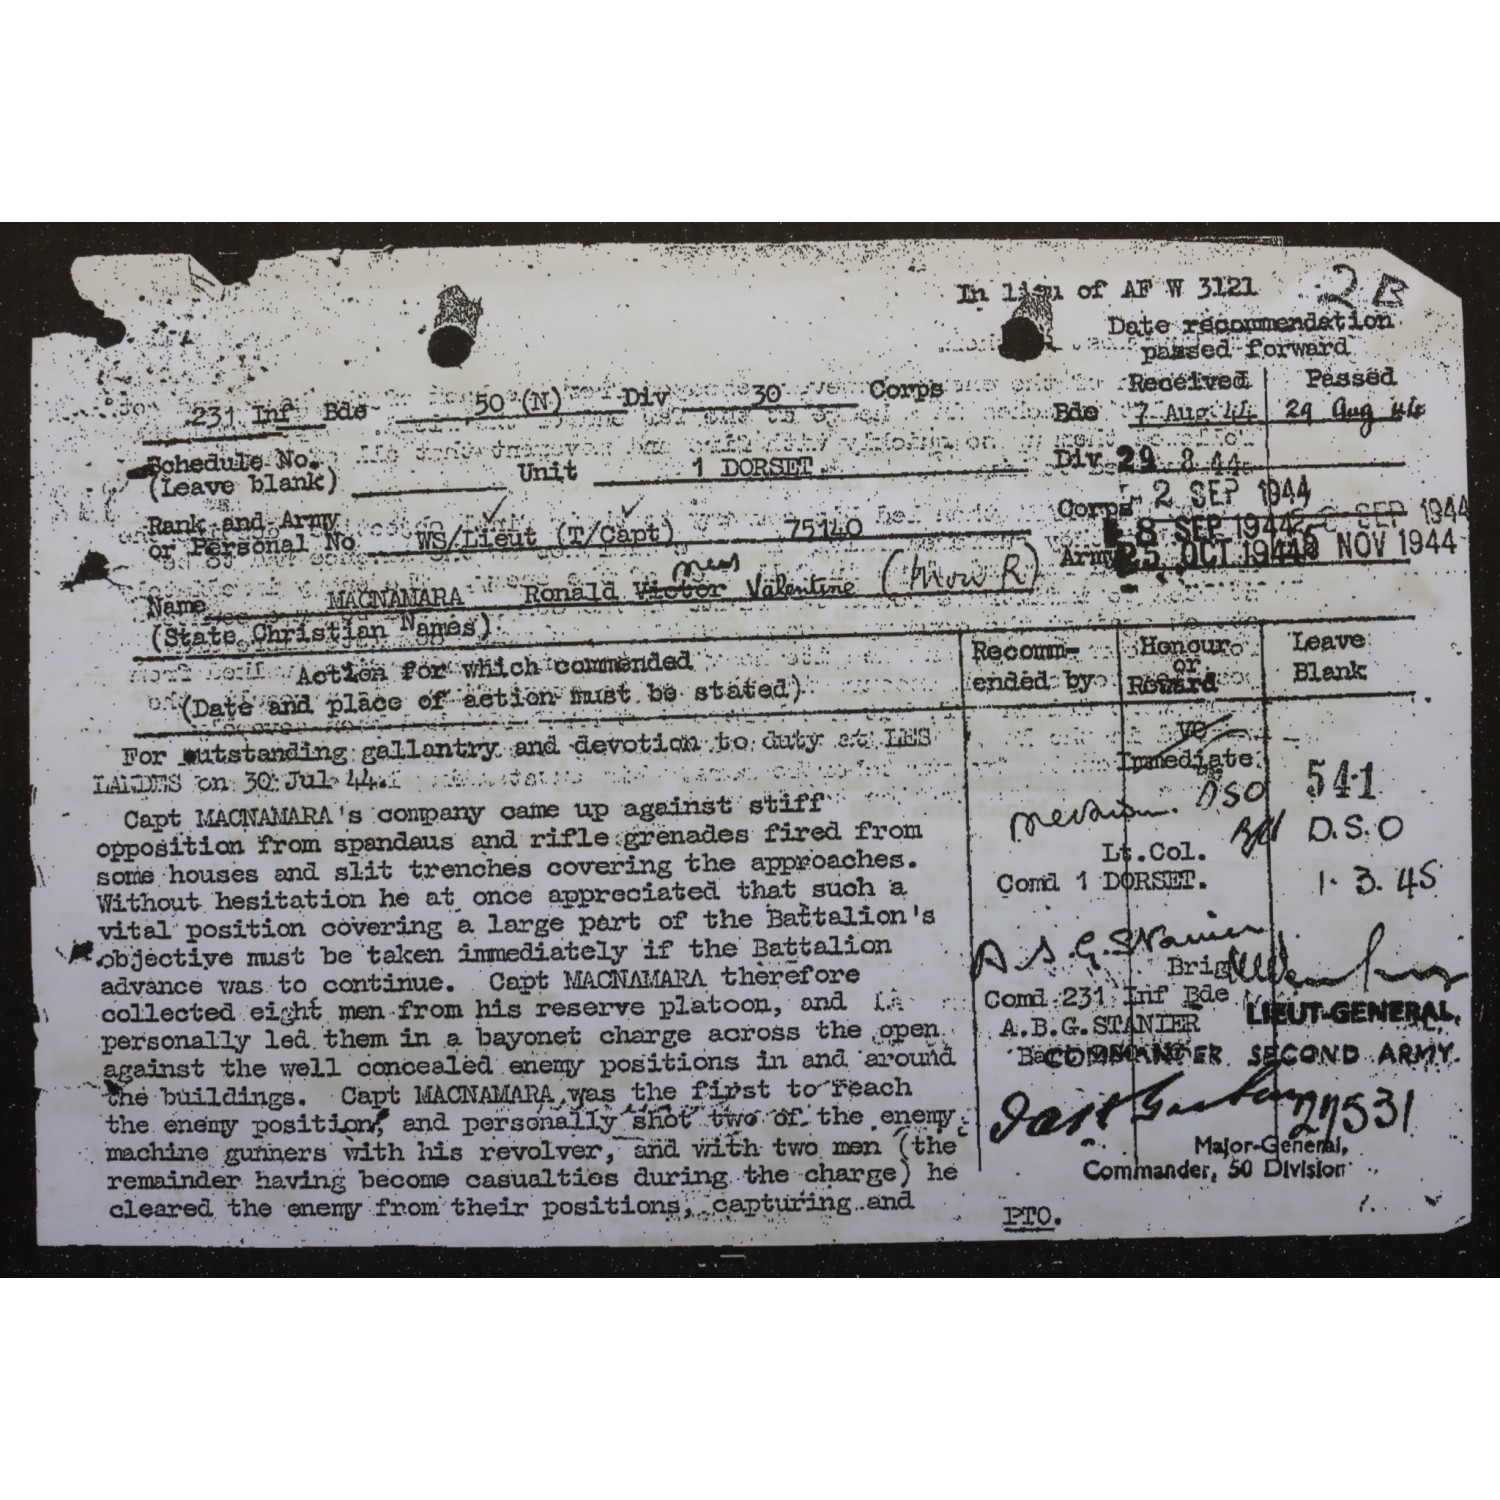 In lieu of AF W 3121 2 B
Date recommendation
passed forward
Received Passed
231 Inf Bde 50 (N) Div 30 Corps
Bde 7 Aug 44 29 Aug 44
Schedule No.
(Leave blank)
Unit 1 DORSET.
Div 29 8 44
Rank and Army
or Personal No WS/Lieut (T/Capt) 75140
Corps - 2 SEP 1944
8 SEP 1944 SEP 1944
Army 25 OCT 1944 NOV 1944
Name MACNAMARA Ronald Victor Valentine
(State Christian Names)
Action for which commended
(Date and place of action must be stated)
Recomm-
ended by
Honour
or
Reward
Leave
Blank
For outstanding gallantry and devotion to duty at LES
LANDES on 30 Jul 44.
Capt MACNAMARA's company came up against stiff
opposition from spandaus and rifle grenades fired from
some houses and slit trenches covering the approaches.
Without hesitation he at once appreciated that such a
vital position covering a large part of the Battalion's
objective must be taken immediately if the Battalion
advance was to continue. Capt MACNAMARA therefore
collected eight men from his reserve platoon, and
personally led them in a bayonet charge across the open
against the well concealed enemy positions in and around
the buildings. Capt MACNAMARA was the first to reach
the enemy position, and personally shot two of the enemy
machine gunners with his revolver, and with two men (the
remainder having become casualties during the charge) he
cleared the enemy from their positions, capturing and
Immediate
DSO
541
D.S.O
1. 3. 45
Lt.Col.
Comd 1 DORSET.
A.B.G. Stanier
Brig
Comd 231 Inf Bde
A.B.G.STANIER
LIEUT-GENERAL,
COMMANDER SECOND ARMY.
27531
Major-General,
Commander, 50 Division
PTO.